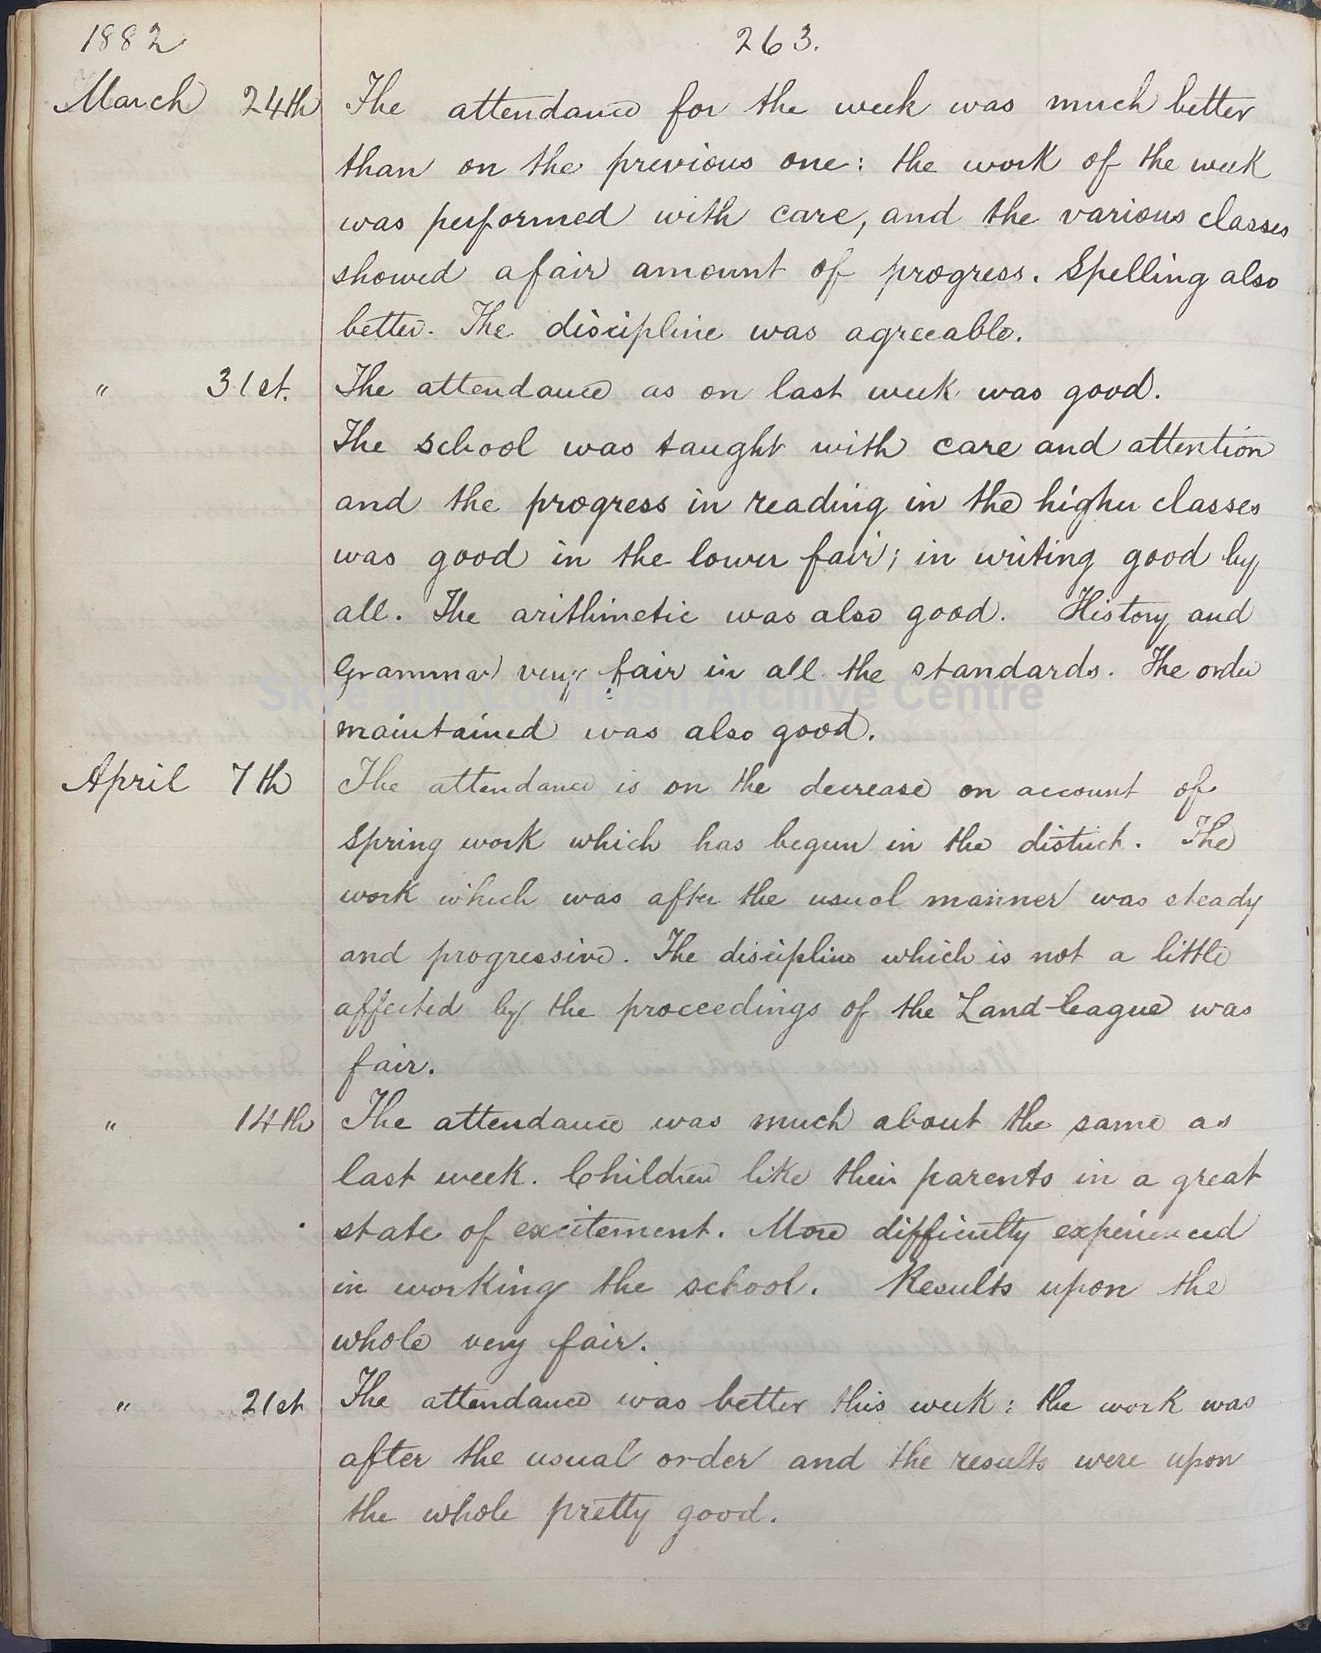 1882 263.
March 24th The attendance for the week was much better
than on the previous one: the work of the week
was performed with care, and the various classes
showed a fair amount of progress. Spelling also
better. The discipline was agreeable.
" 31st. The attendance as on last week was good.
The school was taught with care and attention
and the progress in reading in the higher classes
was good in the lower fair; in writing good by
all. The arithmetic was also good. History and
Grammar very fair in all the standards. The order
Skye and Lochalsh Archive Centre
maintained was also good.
April 7th The attendance is on the decrease on account of
Spring work which has begun in the district. The
work which was after the usual manner was steady
and progressive. The discipline which is not a little
affected by the proceedings of the Land-league was
fair.
" 14th The attendance was much about the same as
last week. Children like their parents in a great
state of excitement. More difficulty experienced
in working the school. Results upon the
whole very fair.
" 21st The attendance was better this week: the work was
after the usual order and the results were upon
the whole pretty good.